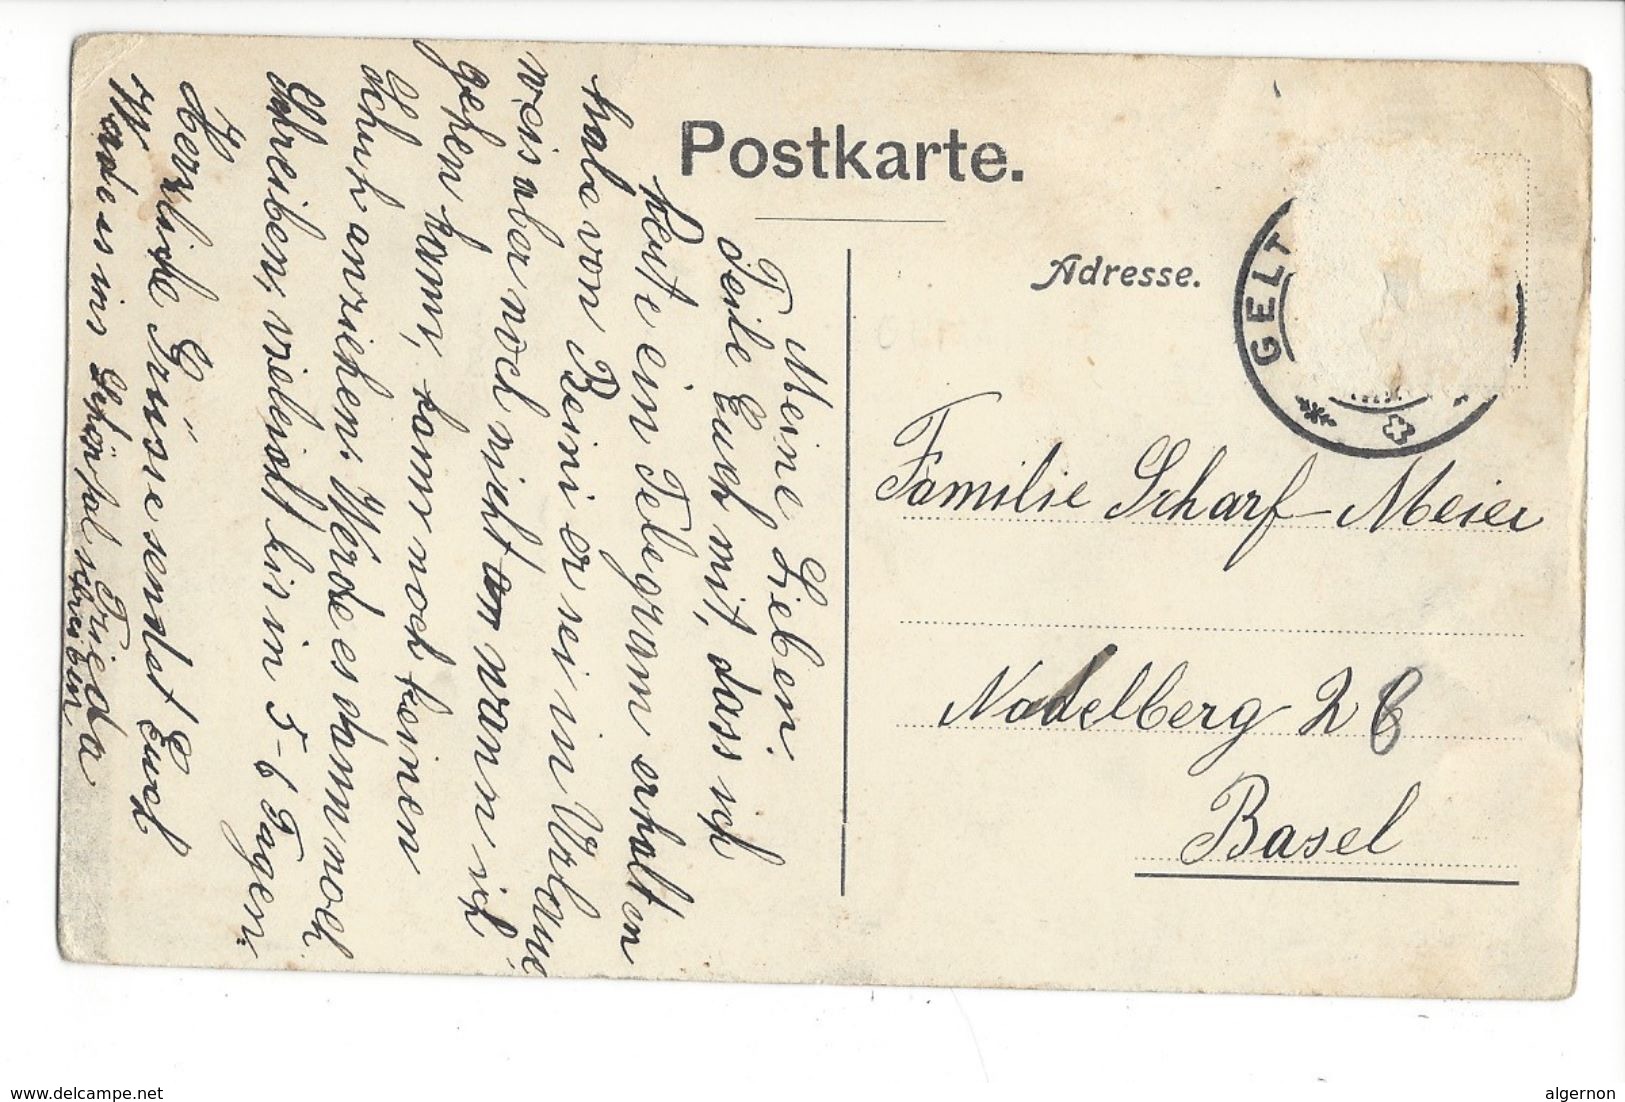 Postkarte.
Adresse.
GELT
Familie Scharf-Meier
Nadelberg 26
Basel
Meine Lieben.
Teile Euch mit, dass ich
heute ein Telegram erhalten
habe von Beini er sei in Urlaub
weis aber noch nicht wann ich
gehen kann, kann noch keinen
Schuh anziehen. Werde es dann noch
Schreiben, vieleicht bis in 5-6 Tagen.
Herzliche Grüsse sendet Euch
Frieda
Werde es ins schreiben
delcampe.net
algernon